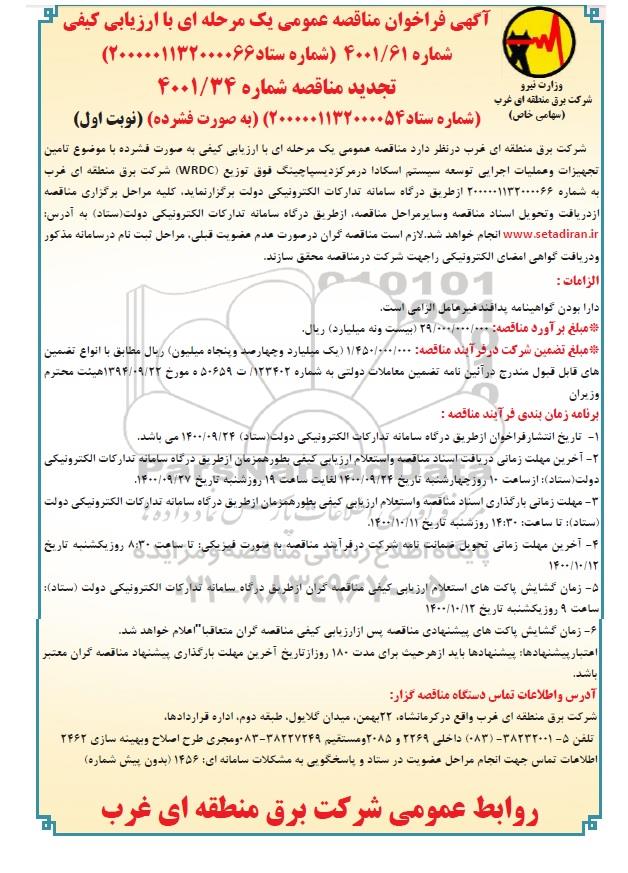 آگهی فراخوان مناقصه عمومی یک مرحله ای با ارزیابی کیفی
شماره ۴۰۰۱/۶۱ (شماره ستاد۲۰۰۰۰۰۱۱۳۲۰۰۰۰۶۶)
تجدید مناقصه شماره ۴۰۰۱/۳۴
(شماره ستاد۲۰۰۰۰۰۱۱۳۲۰۰۰۰۵۴) (به صورت فشرده) (نوبت اول)
وزارت نیرو
شرکت برق منطقه ای غرب
(سهامی خاص)
شرکت برق منطقه ای غرب درنظر دارد مناقصه عمومی یک مرحله ای با ارزیابی کیفی به صورت فشرده با موضوع تامین
تجهیزات وعملیات اجرایی توسعه سیستم اسکادا درمرکزدیسپاچینگ فوق توزیع (WRDC) شرکت برق منطقه ای غرب
به شماره ۲۰۰۰۰۰۱۱۳۲۰۰۰۰۶۶ ازطریق درگاه سامانه تدارکات الکترونیکی دولت برگزارنماید، کلیه مراحل برگزاری مناقصه
ازدریافت وتحویل اسناد مناقصه وسایرمراحل مناقصه، ازطریق درگاه سامانه تدارکات الکترونیکی دولت(ستاد) به آدرس:
www.setadiran.ir انجام خواهد شد.لازم است مناقصه گران درصورت عدم عضویت قبلی، مراحل ثبت نام درسامانه مذکور
ودریافت گواهی امضای الکترونیکی راجهت شرکت درمناقصه محقق سازند.
الزامات :
دارا بودن گواهینامه پدافندغیرعامل الزامی است.
*مبلغ برآورد مناقصه: ۲۹/۰۰۰/۰۰۰/۰۰۰ (بیست ونه میلیارد) ریال.
*مبلغ تضمین شرکت درفرآیند مناقصه: ۱/۴۵۰/۰۰۰/۰۰۰ (یک میلیارد وچهارصد وپنجاه میلیون) ریال مطابق با انواع تضمین
های قابل قبول مندرج درآئین نامه تضمین معاملات دولتی به شماره ۱۲۳۴۰۲/ ت ۵۰۶۵۹ ه مورخ ۱۳۹۴/۰۹/۲۲هیئت محترم
وزیران
برنامه زمان بندی فرآیند مناقصه :
۱- تاریخ انتشارفراخوان ازطریق درگاه سامانه تدارکات الکترونیکی دولت(ستاد) ۱۴۰۰/۰۹/۲۴ می باشد.
۲- آخرین مهلت زمانی دریافت اسناد مناقصه واستعلام ارزیابی کیفی بطورهمزمان ازطریق درگاه سامانه تدارکات الکترونیکی
دولت(ستاد): ازساعت ۱۰ روزچهارشنبه تاریخ ۱۴۰۰/۰۹/۲۴ لغایت ساعت ۱۹ روزشنبه تاریخ ۱۴۰۰/۰۹/۲۷.
۳- مهلت زمانی بارگذاری اسناد مناقصه واستعلام ارزیابی کیفی بطورهمزمان ازطریق درگاه سامانه تدارکات الکترونیکی دولت
(ستاد): تا ساعت: ۱۴:۳۰ روزشنبه تاریخ ۱۴۰۰/۱۰/۱۱.
۴- آخرین مهلت زمانی تحویل ضمانت نامه شرکت درفرآیند مناقصه به صورت فیزیکی: تا ساعت ۸:۳۰ روزیکشنبه تاریخ
۱۴۰۰/۱۰/۱۲
۵- زمان گشایش پاکت های استعلام ارزیابی کیفی مناقصه گران ازطریق درگاه سامانه تدارکات الکترونیکی دولت (ستاد):
ساعت ۹ روزیکشنبه تاریخ ۱۴۰۰/۱۰/۱۲
۶- زمان گشایش پاکت های پیشنهادی مناقصه پس ازارزیابی کیفی مناقصه گران متعاقبا"اعلام خواهد شد.
اعتبارپیشنهادها: پیشنهادها باید ازهرحیث برای مدت ۱۸۰ روزازتاریخ آخرین مهلت بارگذاری پیشنهاد مناقصه گران معتبر
باشد.
آدرس واطلاعات تماس دستگاه مناقصه گزار:
شرکت برق منطقه ای غرب واقع درکرمانشاه، ۲۲بهمن، میدان گلایول، طبقه دوم، اداره قراردادها،
تلفن ۵-۳۸۲۳۲۰۰۱ (۰۸۳) داخلی ۲۲۶۹ و ۲۰۸۵ومستقیم ۳۸۲۲۷۲۴۹-۰۸۳ومجری طرح اصلاح وبهینه سازی ۲۴۶۲
اطلاعات تماس جهت انجام مراحل عضویت در ستاد و پاسخگویی به مشکلات سامانه ای: ۱۴۵۶ (بدون پیش شماره)
روابط عمومی شرکت برق منطقه ای غرب
ParsNamadData
پایگاه اطلاع رسانی مناقصه و مزایده
۰۲۱-۸۸۳۴۹۶۷۰-۵